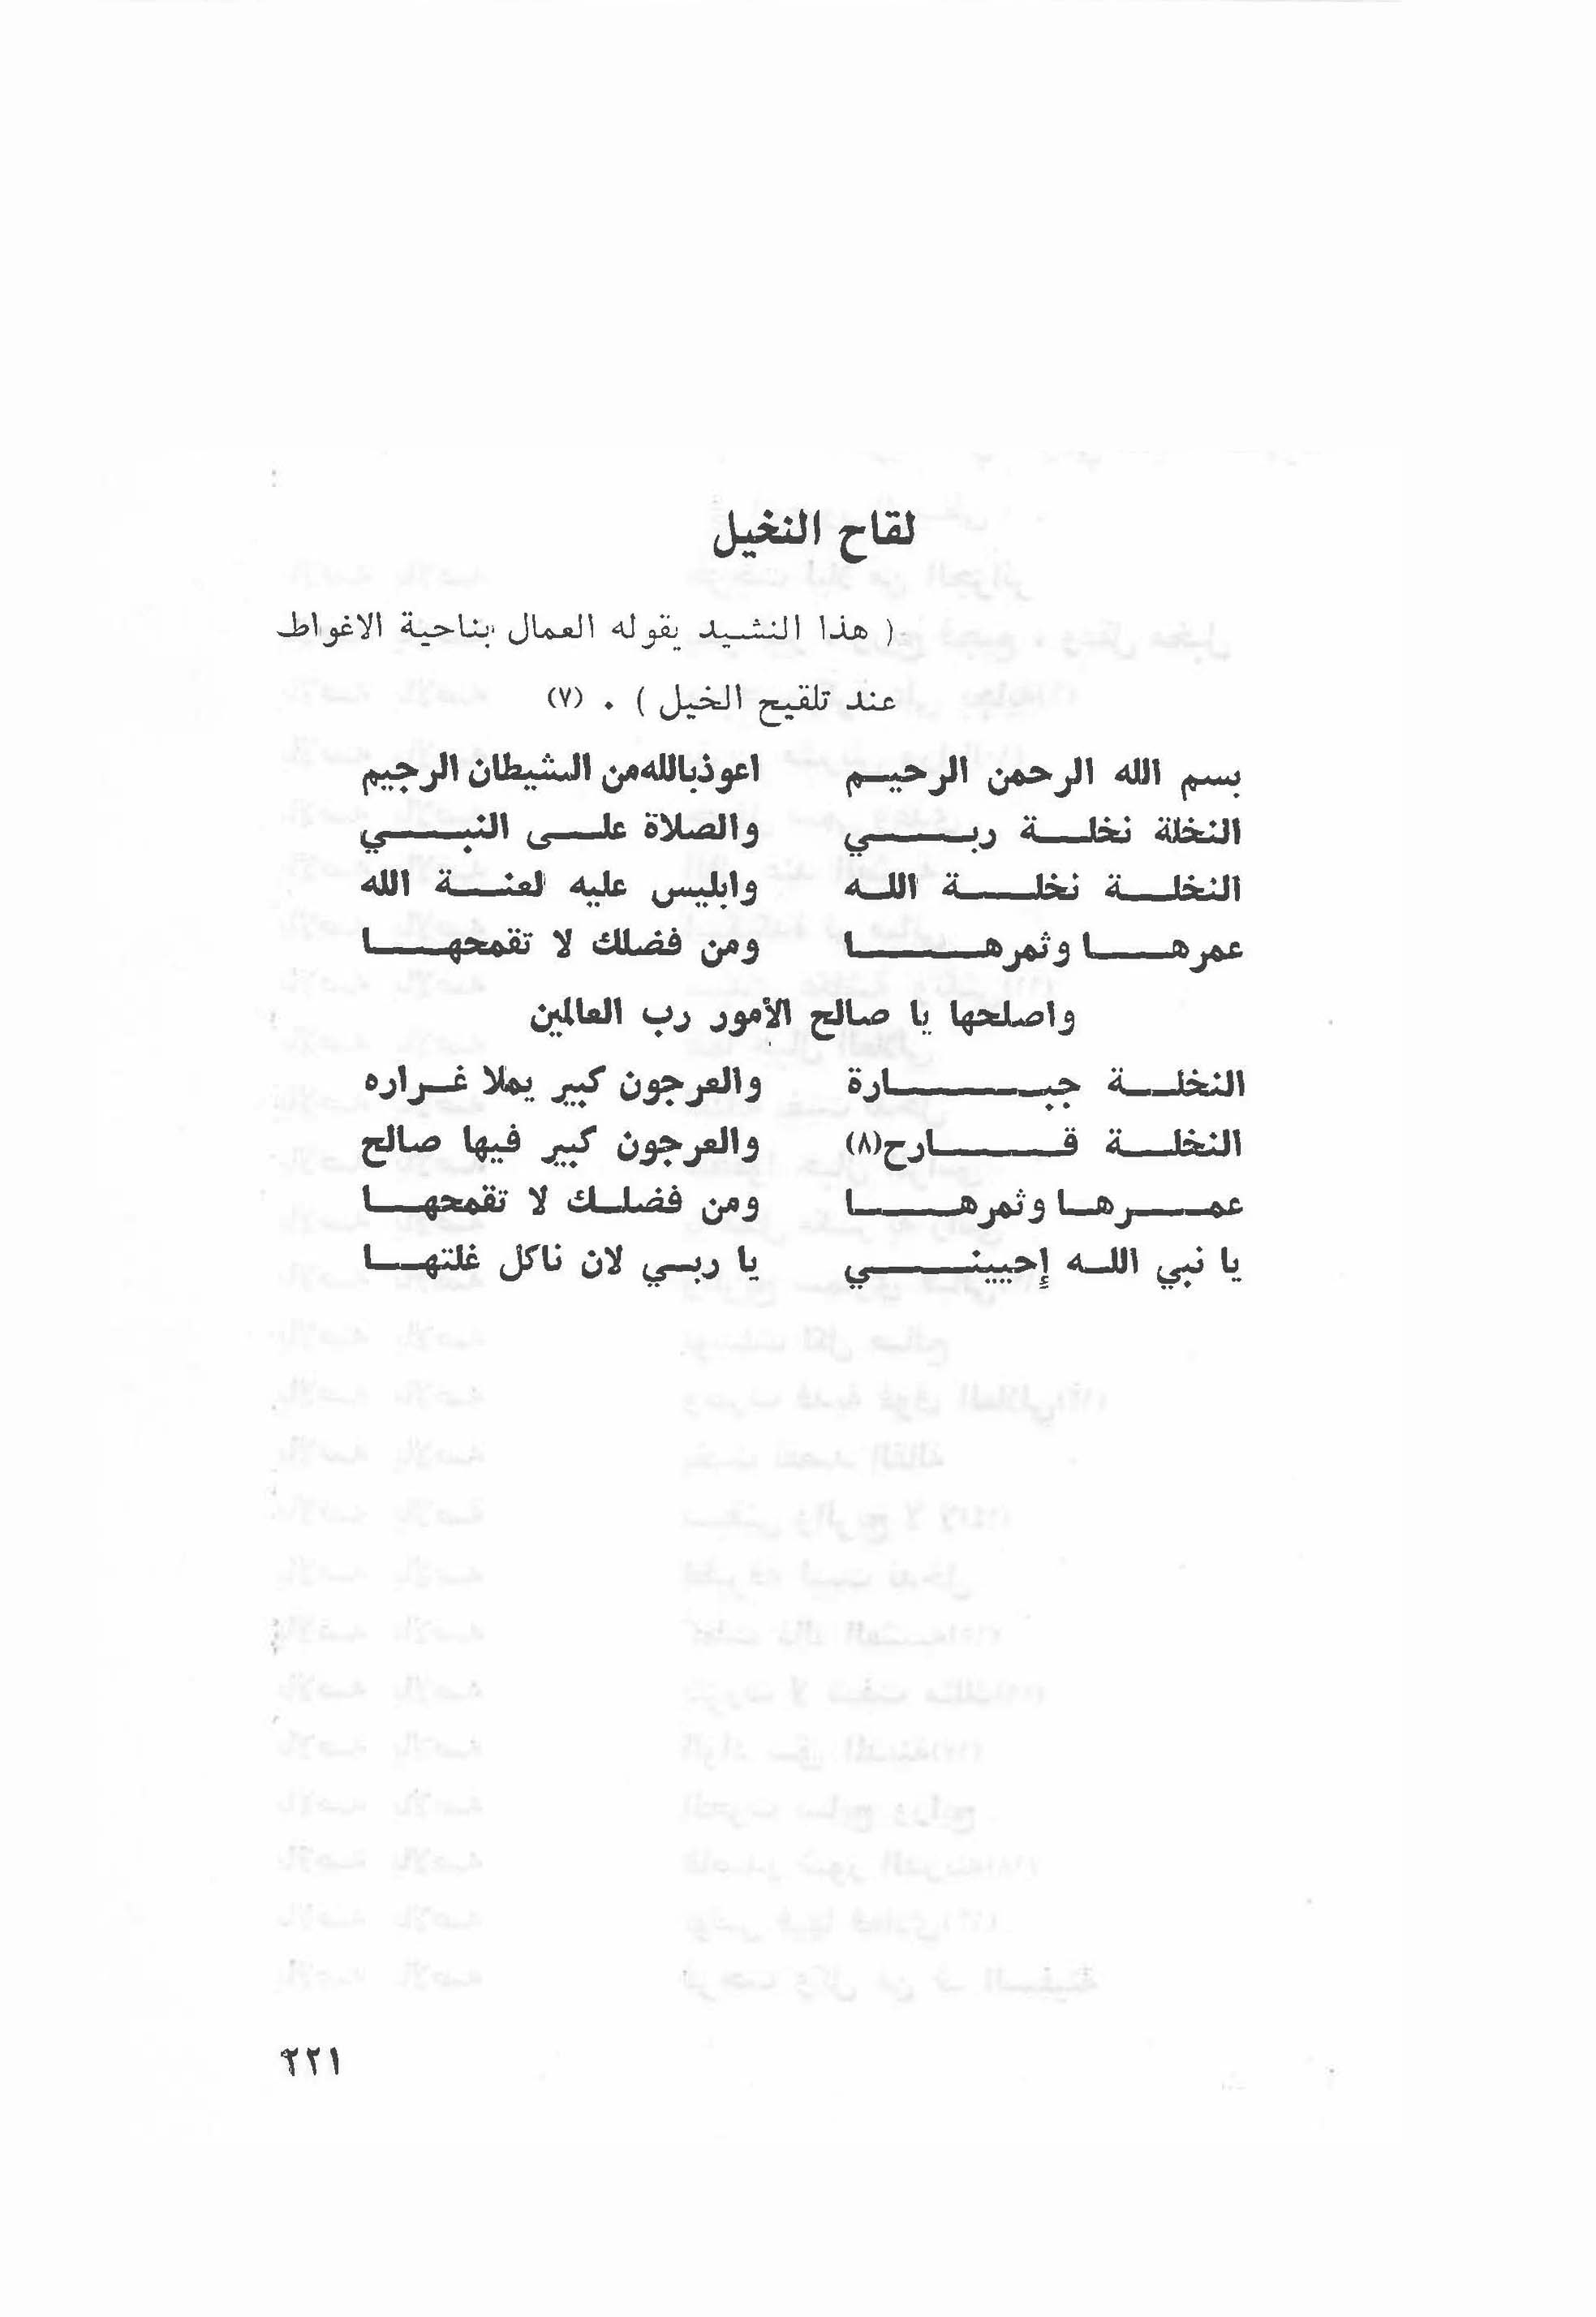 لقاح النخيل
( هذا النشيد يقوله العمال بناحية الاغواط
عند تلقيح الخيل ) . (٧)
بسم الله الرحمن الرحيم اعوذ بالله من الشيطان الرجيم
النخلة نخلة ربي والصلاة على النبي
النخلة نخلة الله وابليس عليه لعنة الله
عمرها وثمرها ومن فضلك لا تقمحها
واصلحها يا صالح الأمور رب العالمين
النخلة جبارة والعرجون كبير يملا غراره
النخلة قارح(٨) والعرجون كبير فيها صالح
عمرها وثمرها ومن فضلك لا تقمحها
يا نبي الله إحييني يا ربي لان ناكل غلتها
٢٢١